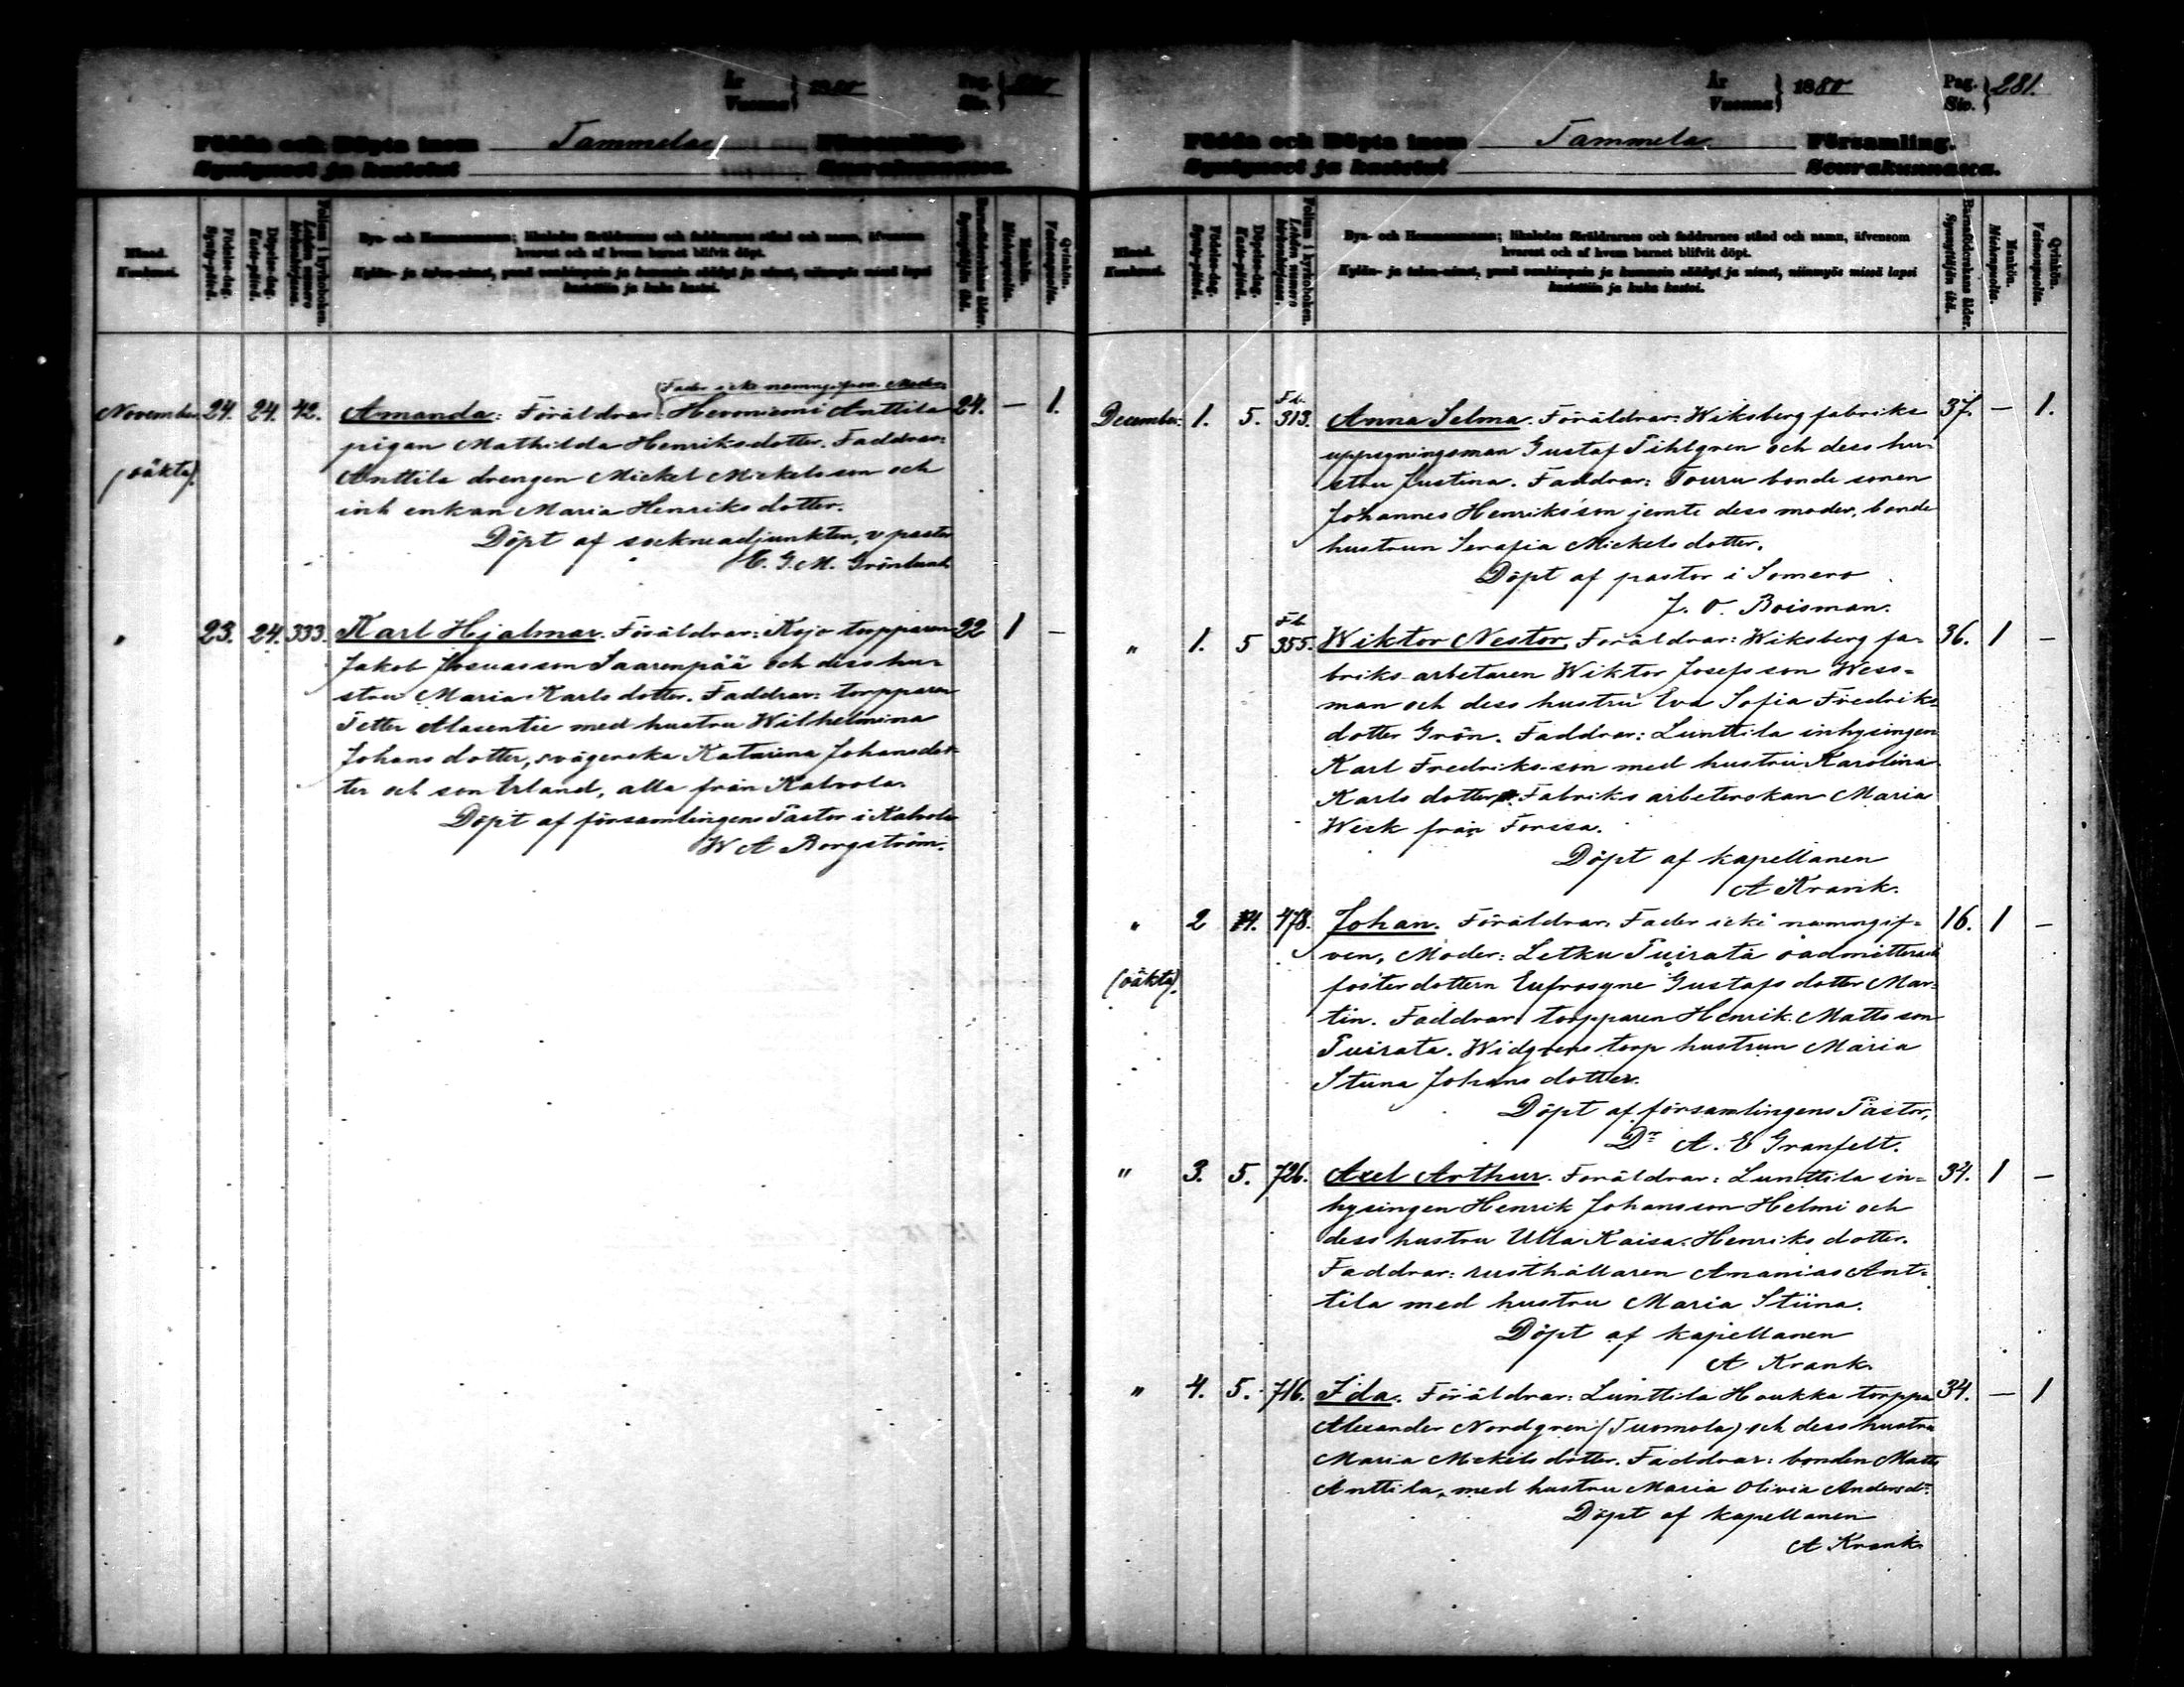 År
Vuonna } 1880
Pag.
Siv. } 280
Födda och Döpta inom Tammela Församling.
Syntyneet ja kastetut Seurakunnassa.
Månad.
Kuukausi.
Födelse-dag.
Synty-päivä.
Döpelse-dag.
Kaste-päivä.
Folium i kyrkoboken.
Lehden numero kirkonkirjassa.
Byn- och Hemmansnamn; likaledes föräldrarnes och faddrarnes stånd och namn, äfvensom
hvarest och af hvem barnet blifvit döpt.
Kylän- ja talon-nimet, ynnä vanhimpain ja kummein säädyt ja nimet, niinmyös missä lapsi
kastettiin ja kuka kastoi.
Barnaföderskans ålder.
Synnyttäjän ikä.
Mankön.
Miehenpuolta.
Qvinkön.
Vaimonpuolta.
(Fader icke namngifven. Moder:
November 24. 24. 42. Amanda: Föräldrar: Heroniemi Anttila 24. — 1.
pigan Mathilda Henriksdotter. Faddrar:
(oäkta). Anttila drengen Mickel Mickelsson och
inh enkan Maria Henriksdotter.
Döpt af sockneadjunkten, v pastor
G. M. Grönlund.
" 23. 24. 333. Karl Hjalmar. Föräldrar: Kojo torpparen 22 1 —
Jakob Josuasson Saarenpää och dess hu-
stru Maria Karlsdotter. Faddrar: torpparen
Petter Alasentie med hustru Wilhelmina
Johansdotter, svägerska Katarina Johansdot-
ter och son Erland, alla från Kalvola.
Döpt af församlingens Pastor i Kalvola
W A Borgström.
År
Vuonna } 1880
Pag.
Siv. } 281.
Födda och Döpta inom Tammela Församling.
Syntyneet ja kastetut Seurakunnassa.
Månad.
Kuukausi.
Födelse-dag.
Synty-päivä.
Döpelse-dag.
Kaste-päivä.
Folium i kyrkoboken.
Lehden numero kirkonkirjassa.
Byn- och Hemmansnamn; likaledes föräldrarnes och faddrarnes stånd och namn, äfvensom
hvarest och af hvem barnet blifvit döpt.
Kylän- ja talon-nimet, ynnä vanhimpain ja kummein säädyt ja nimet, niinmyös missä lapsi
kastettiin ja kuka kastoi.
Barnaföderskans ålder.
Synnyttäjän ikä.
Mankön.
Miehenpuolta.
Qvinkön.
Vaimonpuolta.
Fb.
December. 1. 5. 313. Anna Selma. Föräldrar: Wiksberg fabriks 37. — 1.
uppsyningsman Gustaf Pihlgren och dess hu-
stru Justina. Faddrar: Touru bonde sonen
Johannes Henriksson jemte dess moder, bonde
hustrun Serafia Mickelsdotter.
Döpt af pastor i Somero
J. O. Boisman.
Fb
" 1. 5 355. Wiktor Nestor, Föräldrar: Wiksberg fa- 36. 1 —
briks-arbetaren Wiktor Josefsson Wess=
man och dess hustru Eva Sofia Fredriks-
dotter Grön. Faddrar: Lunttila inhysingen
Karl Fredriksson med hustru Karolina
Karlsdotter. Fabriks arbeterskan Maria
Werk från Forssa.
Döpt af kapellanen
A Krank.
" 2 14. 478. Johan. Föräldrar. Fader icke namngif= 16. 1 —
ven, Moder: Letku Puirata oadmitterade
(oäkta). fosterdottern Eufrosyne Gustafsdotter Mar-
tin. Faddrar: torpparen Henrik Mattsson
Puirata. Widgrens torp hustrun Maria
Stina Johansdotter.
Döpt af församlingens Pastor,
Dr A. E Granfelt.
" 3. 5. 726. Axel Arthur. Föräldrar: Lunttila in= 34. 1 —
hysingen Henrik Johansson Helmi och
dess hustru Ulla Kaisa Henriksdotter.
Faddrar: rusthållaren Amanias Ant=
tila med hustru Maria Stiina.
Döpt af kapellanen
A Krank.
" 4. 5. 716. Ida. Föräldrar: Lunttila Houkka torppa 34. — 1
Alexander Nordgren (Tuomola) och dess hustru
Maria Mickelsdotter. Faddrar: bonden Matts
Anttila, med hustru Maria Olivia Andersdr.
Döpt af kapellanen
A Krank.